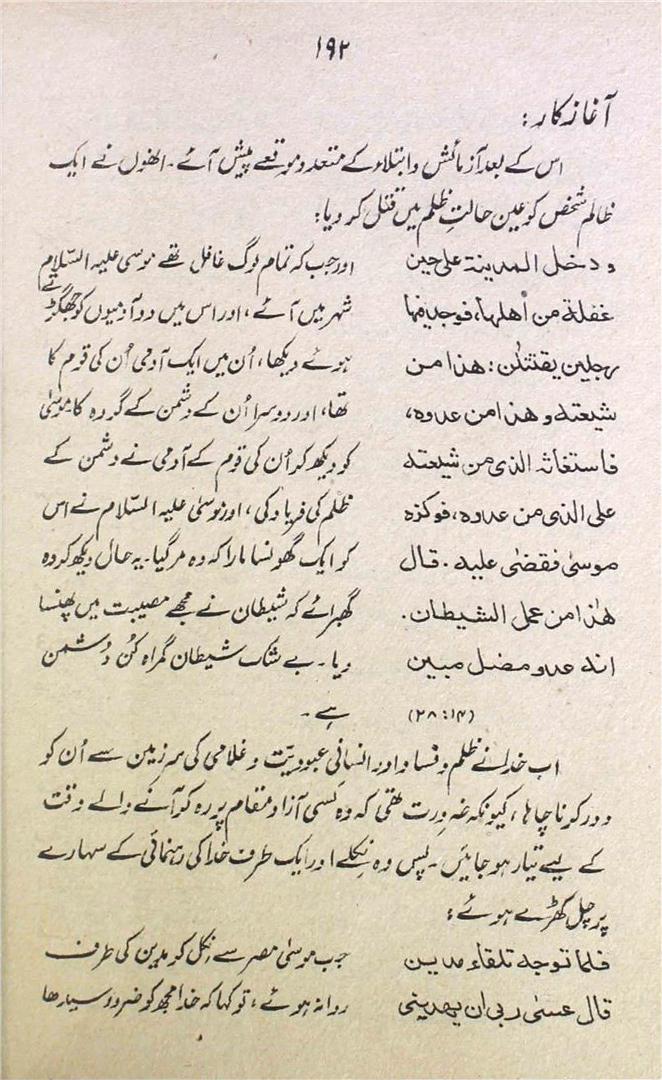 ۱۹۲
آغاز کار :
اس کے بعد آزمائش و ابتلاء کے متعدد موقعے پیش آئے ۔ انھوں نے ایک
ظالم شخص کو عین حالتِ ظلم میں قتل کر دیا :
و دخل المدینة علی حین
غفلة من أهلها، فوجد فیها
رجلین یقتتلٰن : هذا من
شیعته و هذا من عدوه،
فاستغاثه الذی من شیعته
علی الذی من عدوه، فوکزه
موسیٰ فقضیٰ علیه ۔ قال
هٰذا من عمل الشیطان ۔
انه عدو مضل مبین
(۲۸ : ۱۴)
اور جب کہ تمام لوگ غافل تھے موسیٰ علیہ السّلام
شہر میں آئے ، اور اس میں دو آدمیوں کو جھگڑتے
ہوئے دیکھا ، اُن میں ایک آدمی اُن کی قوم کا
تھا ، اور دوسرا اُن کے دشمن کے گروہ کا موسیٰ
کو دیکھ کر اُن کی قوم کے آدمی نے دشمن کے
ظلم کی فریاد کی ، اور موسیٰ علیہ السّلام نے اس
کو ایک گھونسا مارا کہ وہ مر گیا ۔ یہ حال دیکھ کر وہ
گھبرائے کہ شیطان نے مجھے مصیبت میں پھنسا
دیا ۔ بے شک شیطان گمراہ کُن دُشمن
ہے ۔
اب خدا نے ظلم و فساد اور انسانی عبودیّت و غلامی کی سرزمین سے اُن کو
دور کرنا چاہا ، کیونکہ ضرورت تھی کہ وہ کسی آزاد مقام پر رہ کر آنے والے وقت
کے لیے تیار ہو جائیں ۔ پس وہ نکلے اور ایک طرف خدا کی رہنمائی کے سہارے
پر چل کھڑے ہوئے :
فلما توجه تلقاء مدین
قال عسیٰ ربی ان یهدینی
جب موسیٰ مصر سے نکل کر مدین کی طرف
روانہ ہوئے ، تو کہا کہ خدا مجھ کو ضرور سیدھا